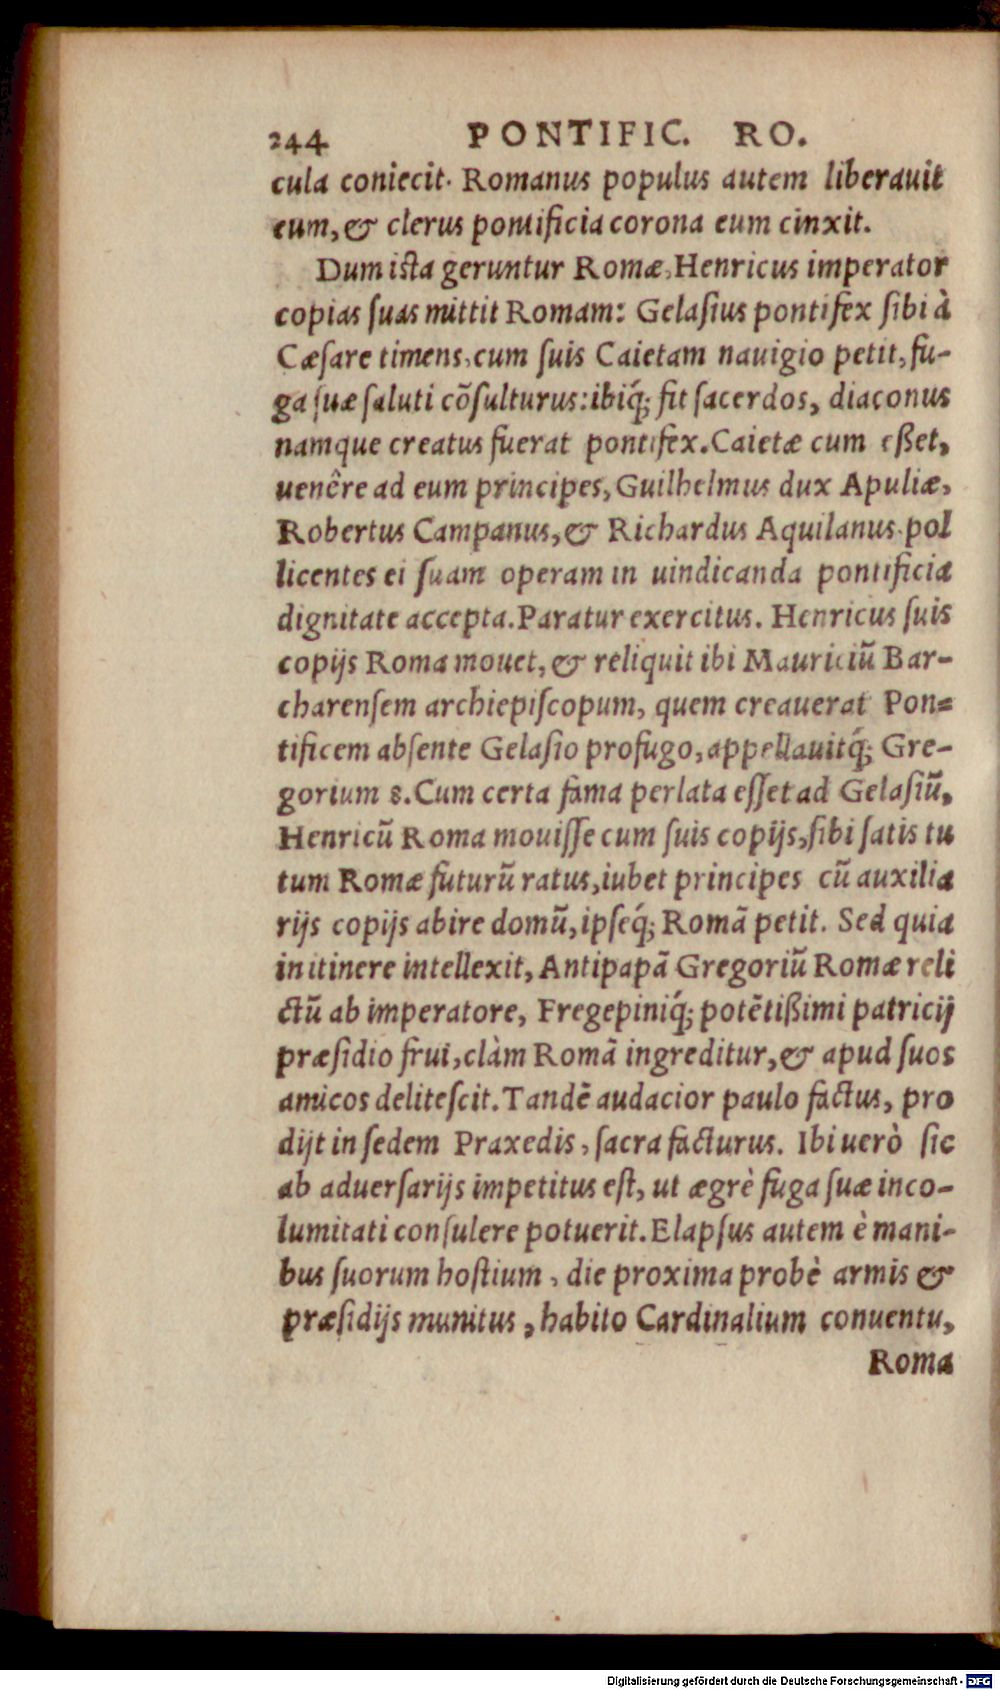 244 PONTIFIC. RO.
cula coniecit. Romanus populus autem liberauit
eum, & clerus pontificia corona eum cinxit.
Dum ista geruntur Romæ, Henricus imperator
copias ſuas mittit Romam: Gelaſius pontifex ſibi à
Cæſare timens, cum ſuis Caietam nauigio petit, fu-
ga ſuæ ſaluti cõſulturus: ibiq́; fit ſacerdos, diaconus
namque creatus fuerat pontifex. Caietæ cum eßet,
uenêre ad eum principes, Guilhelmus dux Apuliæ,
Robertus Campanus, & Richardus Aquilanus. pol
licentes ei ſuam operam in uindicanda pontificia
dignitate accepta. Paratur exercitus. Henricus ſuis
copijs Roma mouet, & reliquit ibi Mauriciũ Bar-
charenſem archiepiſcopum, quem creauerat Pon=
tificem abſente Gelaſio profugo, appellauitq́; Gre-
gorium 8. Cum certa fama perlata eſſet ad Gelaſiũ,
Henricũ Roma mouiſſe cum ſuis copijs, ſibi ſatis tu
tum Romæ futurũ ratus, iubet principes cũ auxilia
rijs copijs abire domũ, ipſeq́; Romã petit. Sed quia
in itinere intellexit, Antipapã Gregoriũ Romæ reli
ctũ ab imperatore, Fregepiniq́; potẽtißimi patricij
præſidio frui, clàm Romã ingreditur, & apud ſuos
amicos deliteſcit. Tandẽ audacior paulo factus, pro
dijt in ſedem Praxedis, ſacra facturus. Ibi uerò ſic
ab aduerſarijs impetitus eſt, ut ægrè fuga ſuæ inco-
lumitati conſulere potuerit. Elapſus autem è mani-
bus ſuorum hoſtium, die proxima probè armis &
præſidijs munitus, habito Cardinalium conuentu,
Roma
Digitalisierung gefördert durch die Deutsche Forschungsgemeinschaft - DFG